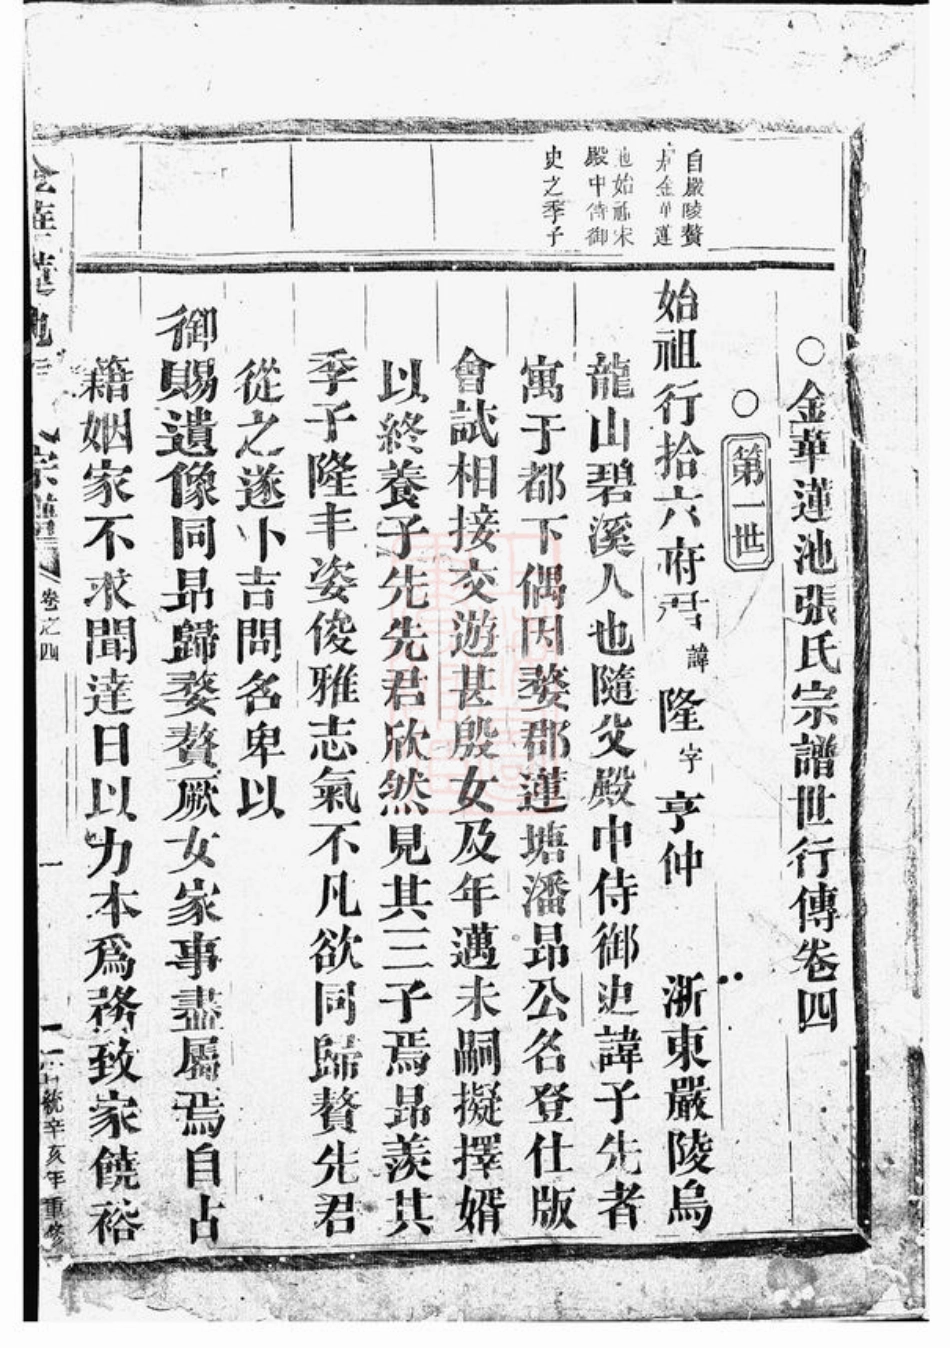 ○金華蓮池張氏宗譜世行傳卷四
○第一世
自嚴陵贅
金華蓮
池始祖宋
殿中侍御
史之季子
始祖行拾六府君諱隆字亨仲 浙東嚴陵烏
龍山碧溪人也隨父殿中侍御史諱予先者
寓于都下偶因婺郡蓮塘潘昻公名登仕版
會試相接交遊甚殷女及年邁未嗣擬擇婿
以終養子先先君欣然見其三子焉昻羨其
季子隆丰姿俊雅志氣不凡欲同歸贅先君
從之遂卜吉問名卑以
御賜遺像同昻歸婺贅厥女家事盡屬焉自占
籍姻家不求聞達日以力本爲務致家饒裕
宗譜
卷之四
一
統辛亥年重修